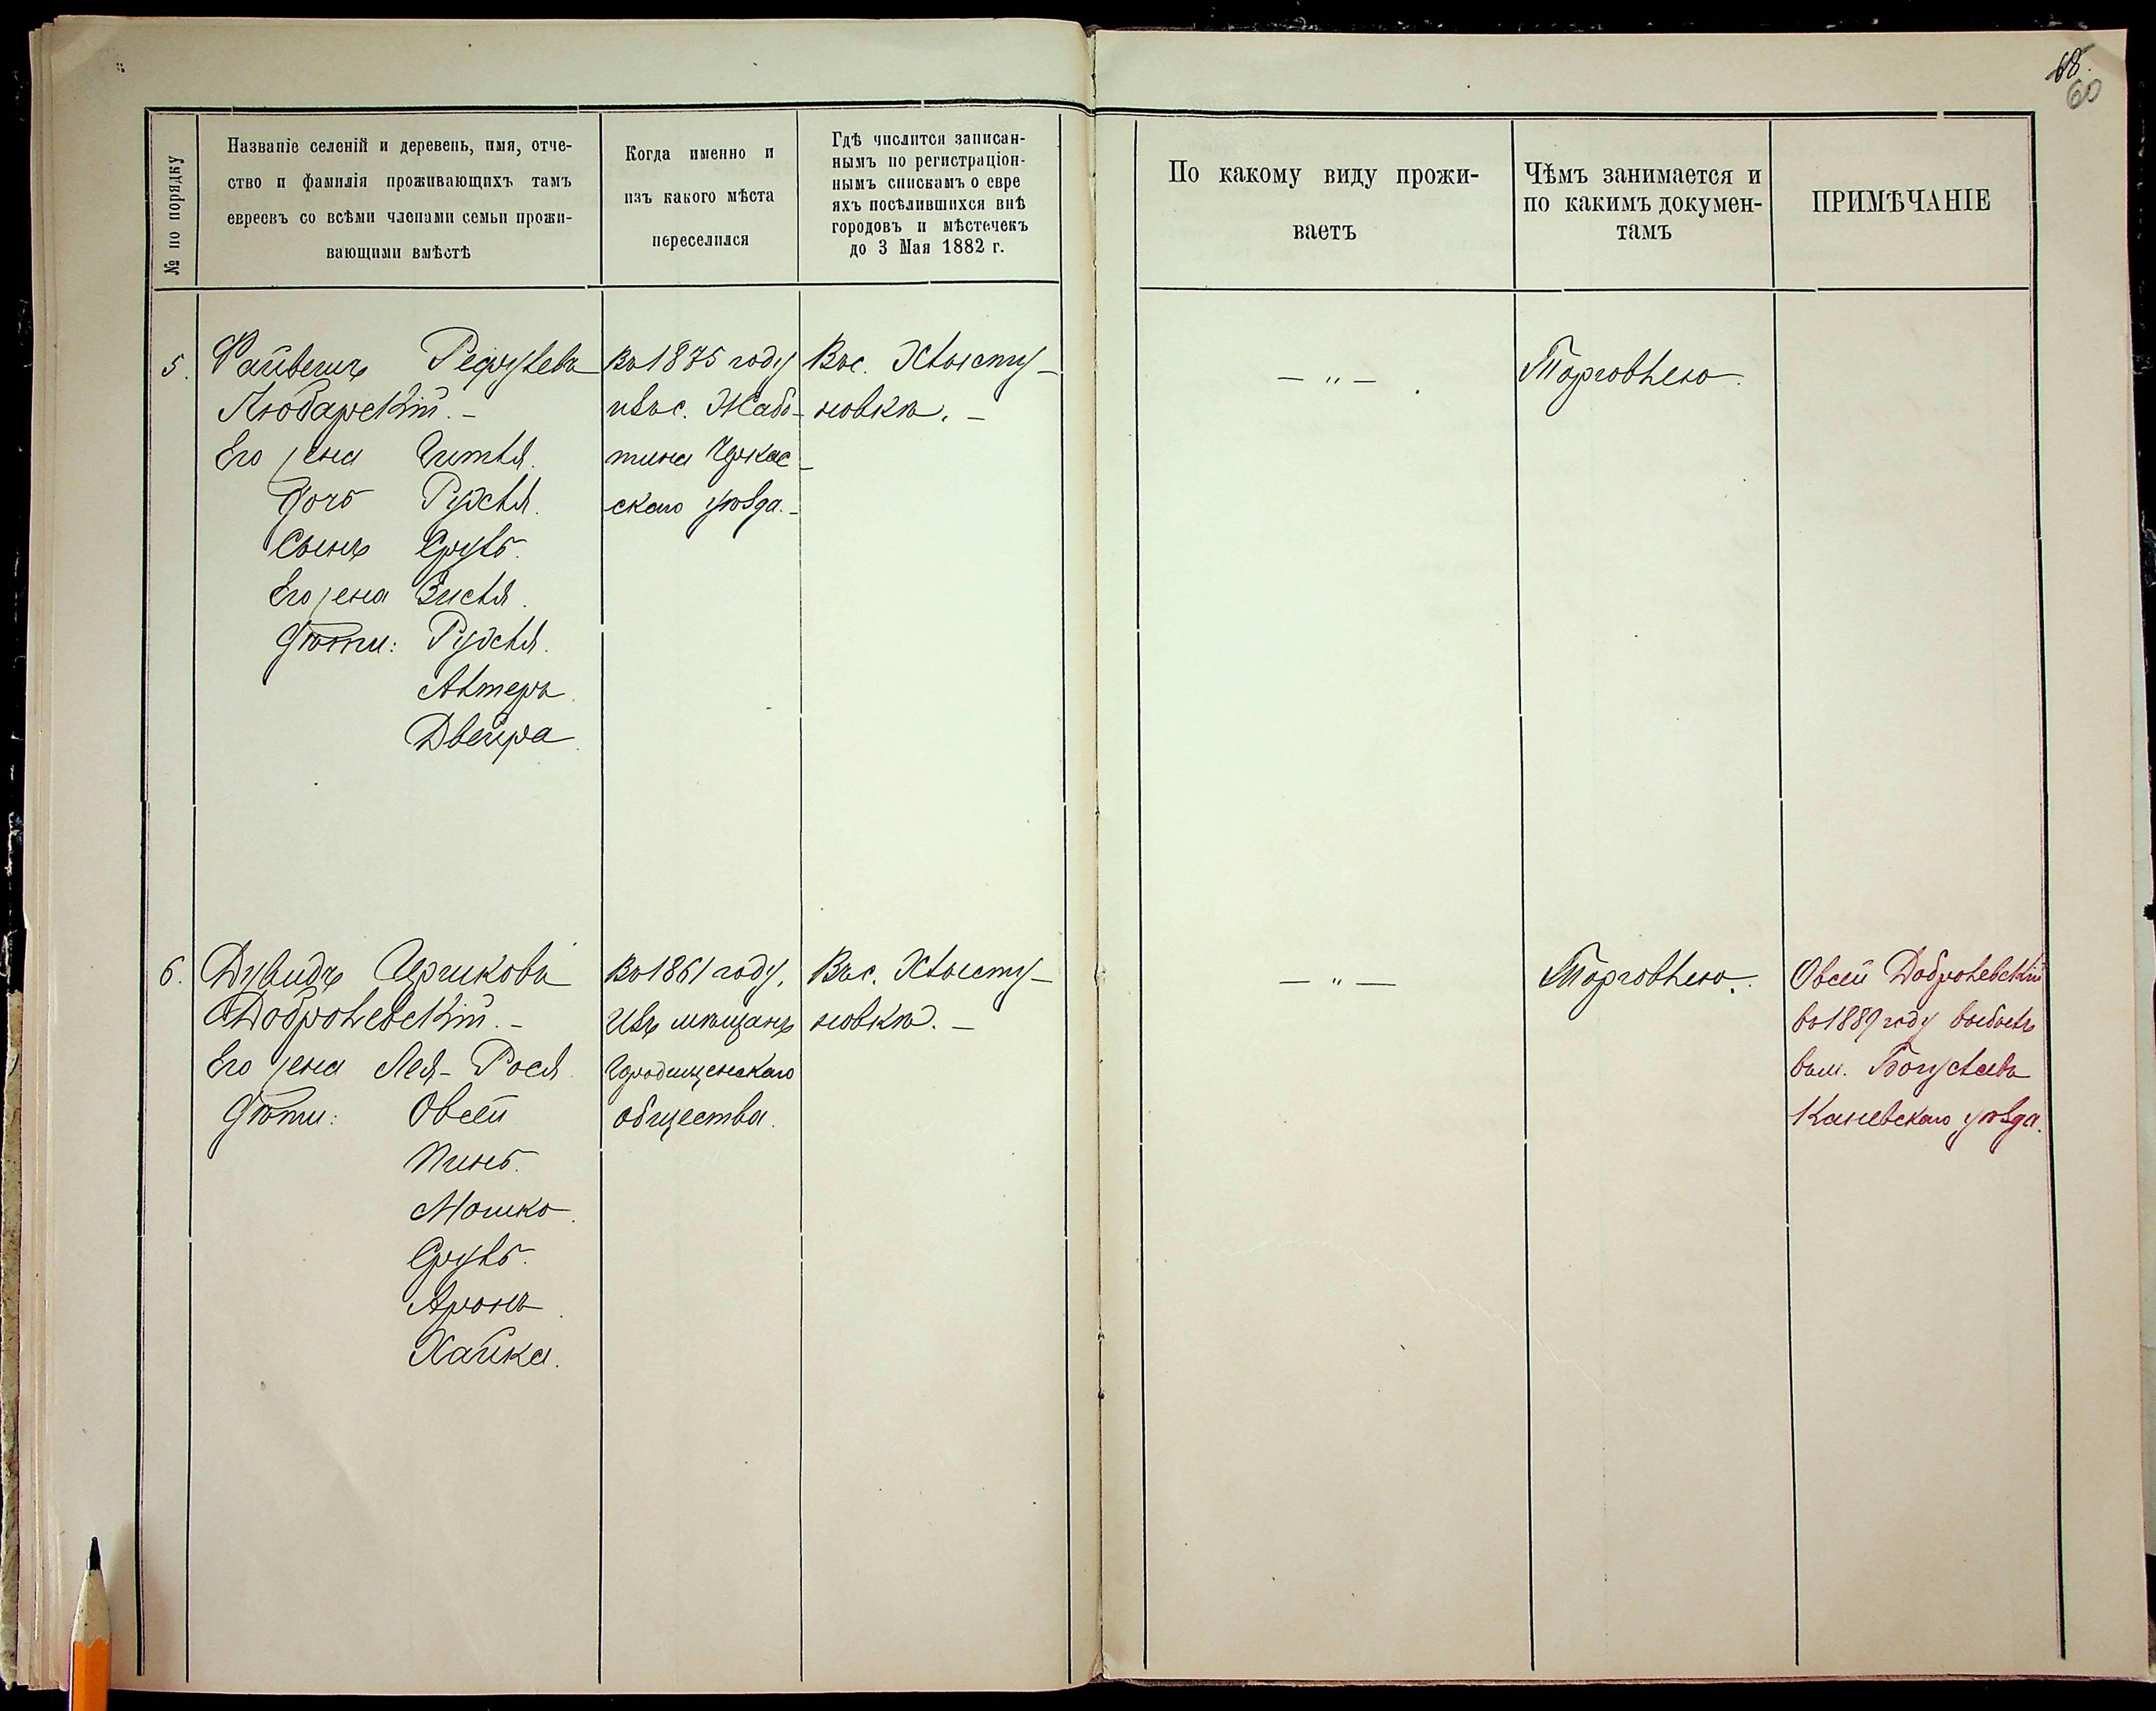 68.
60
№ по порядку
Названіе селеній и деревень, имя, отче-
ство и фамилія проживающихъ тамъ
евреевъ со всѣми членами семьи прожи-
вающими вмѣстѣ
Когда именно и
изъ какого мѣста
переселился
Гдѣ числится записан-
нымъ по регистраціон-
нымъ спискамъ о евре
яхъ поселившихся внѣ
городовъ и мѣстечекъ
до 3 Мая 1882 г.
По какому виду прожи-
ваетъ
Чѣмъ занимается и
по какимъ докумен-
тамъ
ПРИМѢЧАНІЕ
5. Файвишъ
Любарскій. -
Его жена Гитля.
Дочь Рухля.
Сынъ Сруль.
Его жена Зисля.
Дѣти: Рухля.
Алтеръ.
Двейра.
Въ 1875 году
изъ с. Жабо-
тина Черкас-
скаго уѣзда. -
Въ с. Хлысту-
новкѣ. -
— " —
Торговлею.
6. Дувидъ Гершковъ
Добролевскій. -
Его жена Лея-Рося.
Дѣти: Овсей
Пинь.
Мошко.
Сруль.
Аронъ.
Хайка.
Въ 1861 году.
Изъ мѣщанъ
Городищенскаго
общества.
Въ с. Хлысту-
новкѣ. -
— " —
Торговлею.
Овсей Добролевскій
въ 1889 году выбылъ
въ м. Богуславъ
Каневскаго уѣзда.